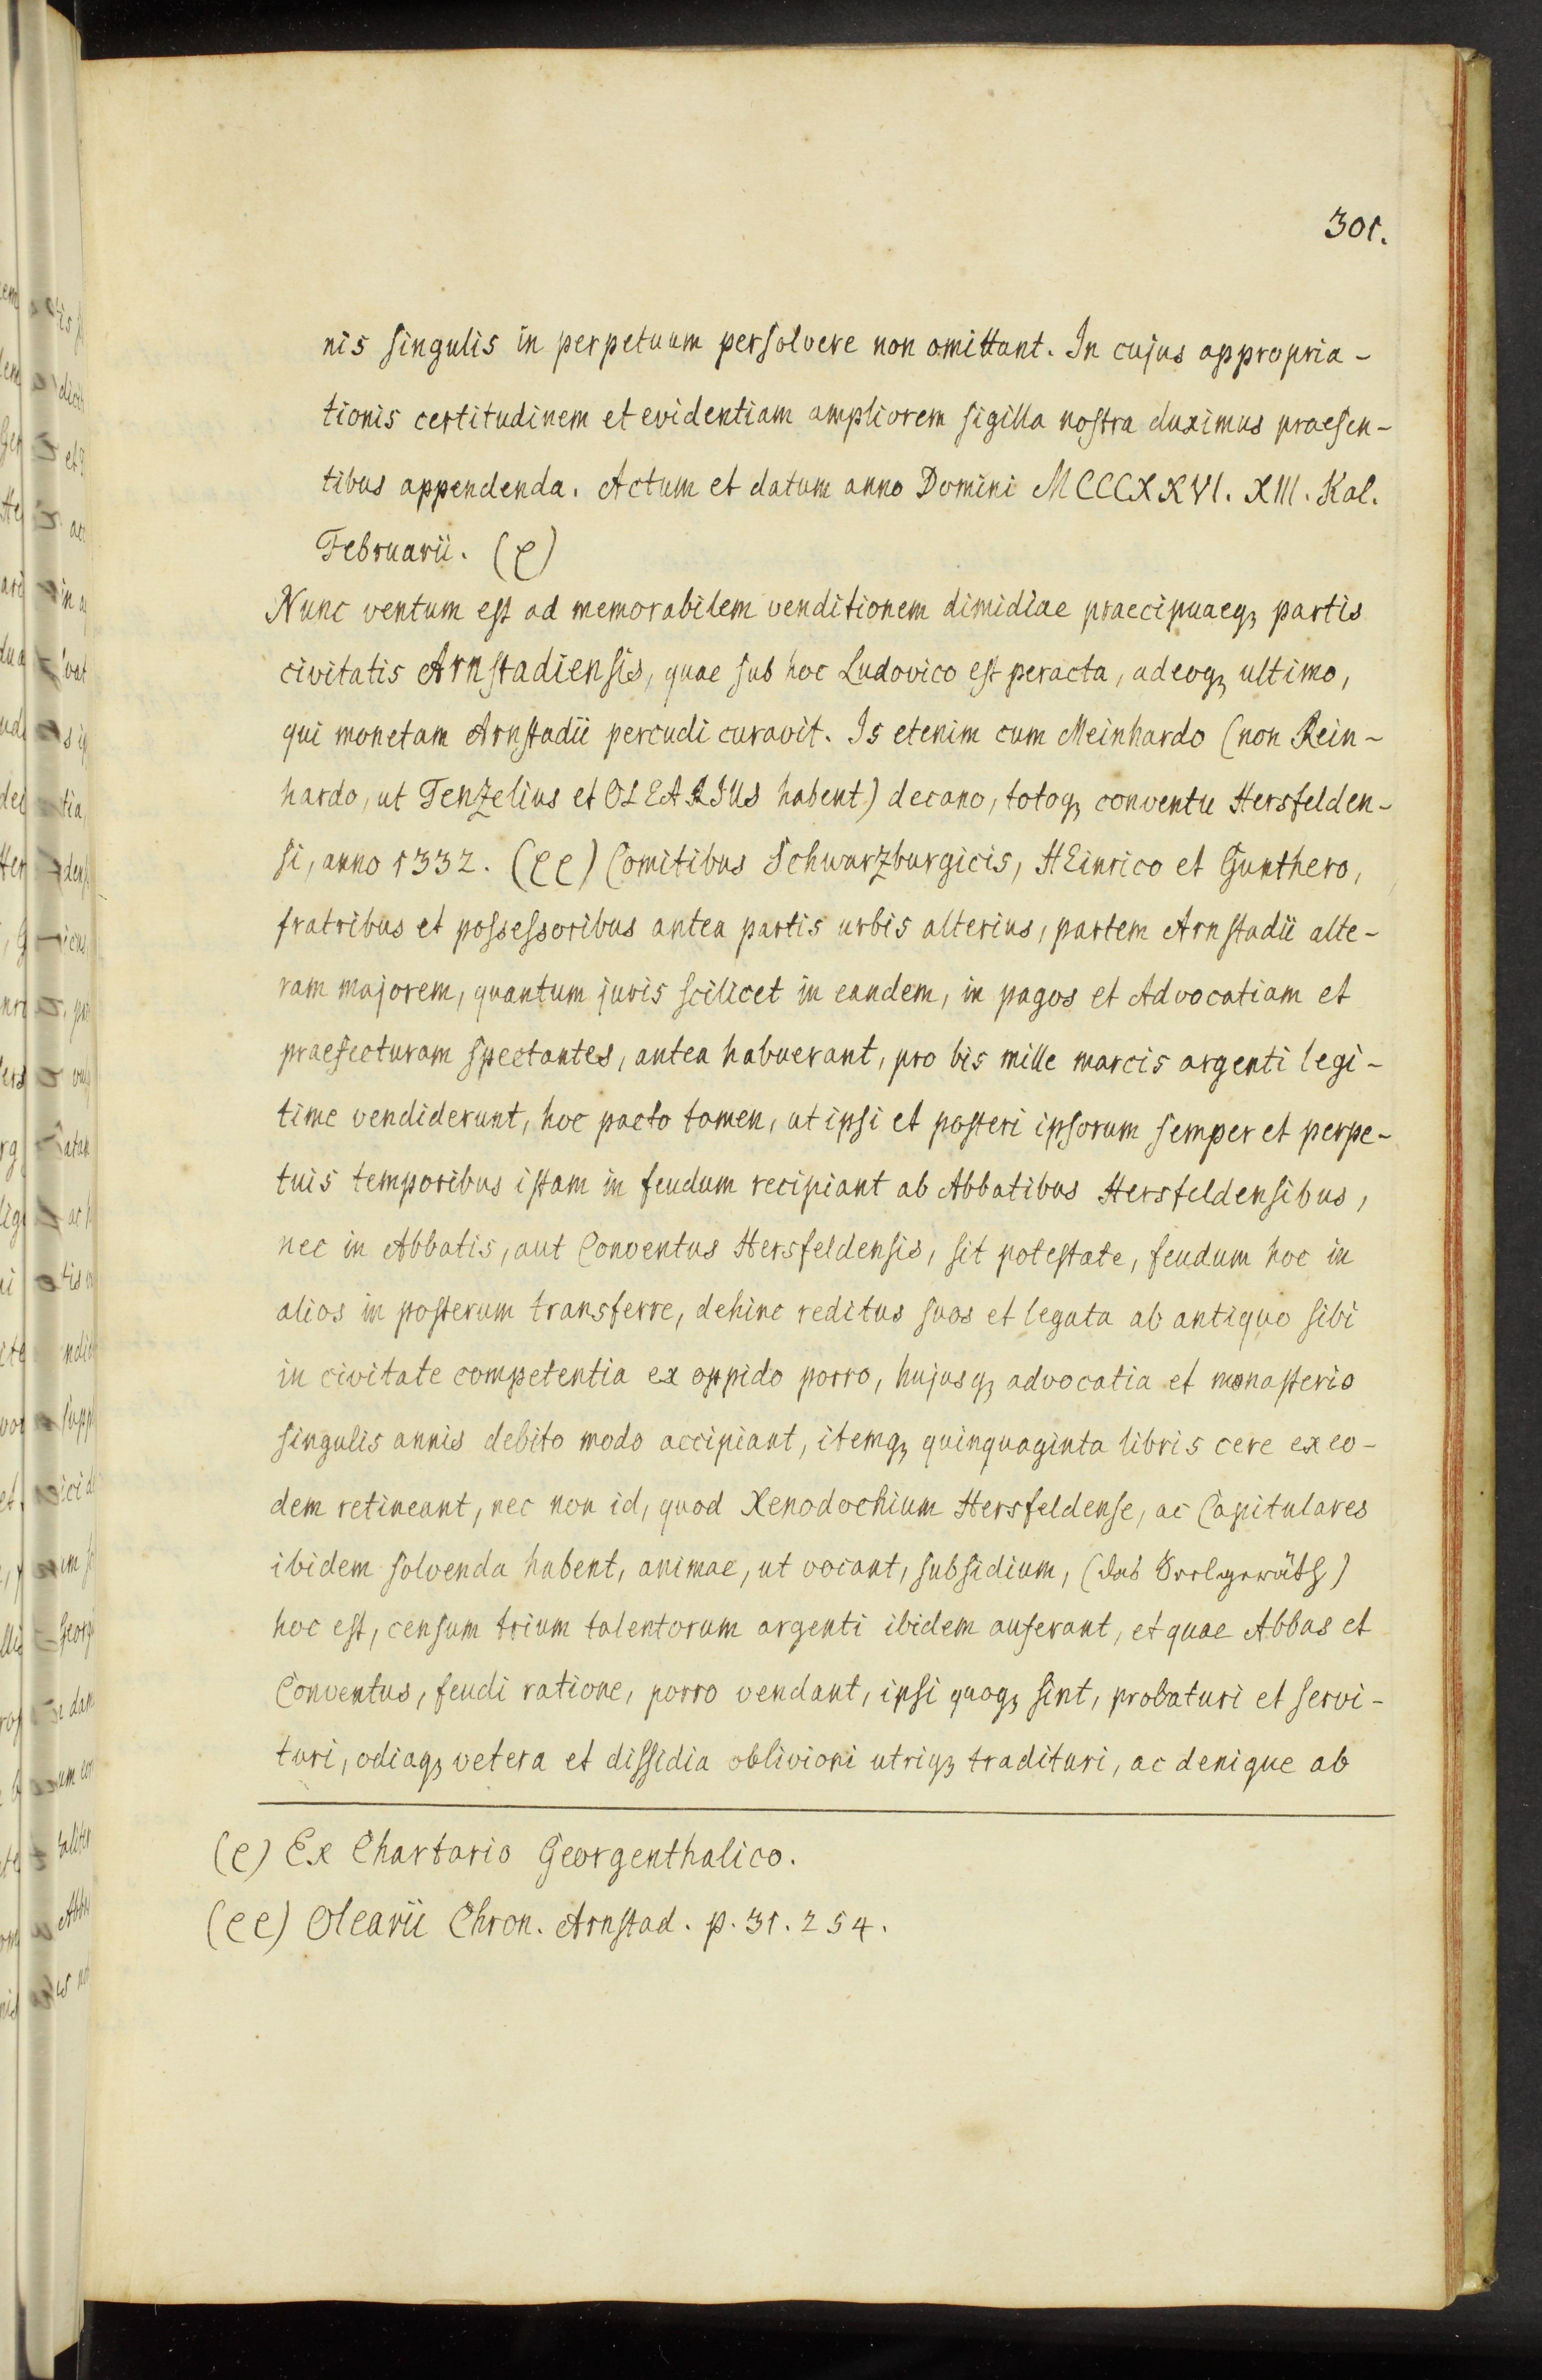 301.
nis singulis in perpetuum persolvere non omittant. In cujus appropria-
tionis certitudinem et evidentiam ampliorem sigilla nostra duximus praesen-
tibus appendenda. Actum et datum anno Domini MCCCXXVI. XIII. Kal.
Februarii. (e)
Nunc ventum est ad memorabilem venditionem dimidiae praecipuaeqꝫ partis
civitatis Arnstadiensis, quae sub hoc Ludovico est peracta, adeoqꝫ ultimo,
qui monetam Arnstadii percudi curavit. Is etenim cum Meinhardo (non Rein-
hardo, ut Tenzelius et OLEARIUS habent) decano, totoqꝫ conventu Hersfelden-
si, anno 1332. (ee) Comitibus Schwarzburgicis, HEinrico et Gunthero,
fratribus et possessoribus antea partis urbis alterius, partem Arnstadii alte-
ram majorem, quantum juris scilicet in eandem, in pagos et Advocatiam et
praefecturam spectantes, antea habuerant, pro bis mille marcis argenti legi-
time vendiderunt, hoc pacto tamen, ut ipsi et posteri ipsorum semper et perpe-
tuis temporibus istam in feudum recipiant ab Abbatibus Hersfeldensibus,
nec in Abbatis, aut Conventus Hersfeldensis, sit potestate, feudum hoc in
alios in posterum transferre, dehinc reditus suos et legata ab antiquo sibi
in civitate competentia ex oppido porro, hujusqꝫ advocatia et monasterio
singulis annis debito modo accipiant, itemqꝫ quinquaginta libris cere ex eo-
dem retineant, nec non id, quod Xenodochium Hersfeldense, ac Capitulares
ibidem solvenda habent, animae, ut vocant, subsidium, (das Seelgeräth)
hoc est, censum trium talentorum argenti ibidem auferant, et quae Abbas et
Conventus, feudi ratione, porro vendant, ipsi quoqꝫ sint, probaturi et servi-
turi, odiaqꝫ vetera et dissidia oblivioni utriqꝫ tradituri, ac denique ab
(e) Ex Chartario Georgenthalico.
(ee) Olearii Chron. Arnstad. p. 31. 254.